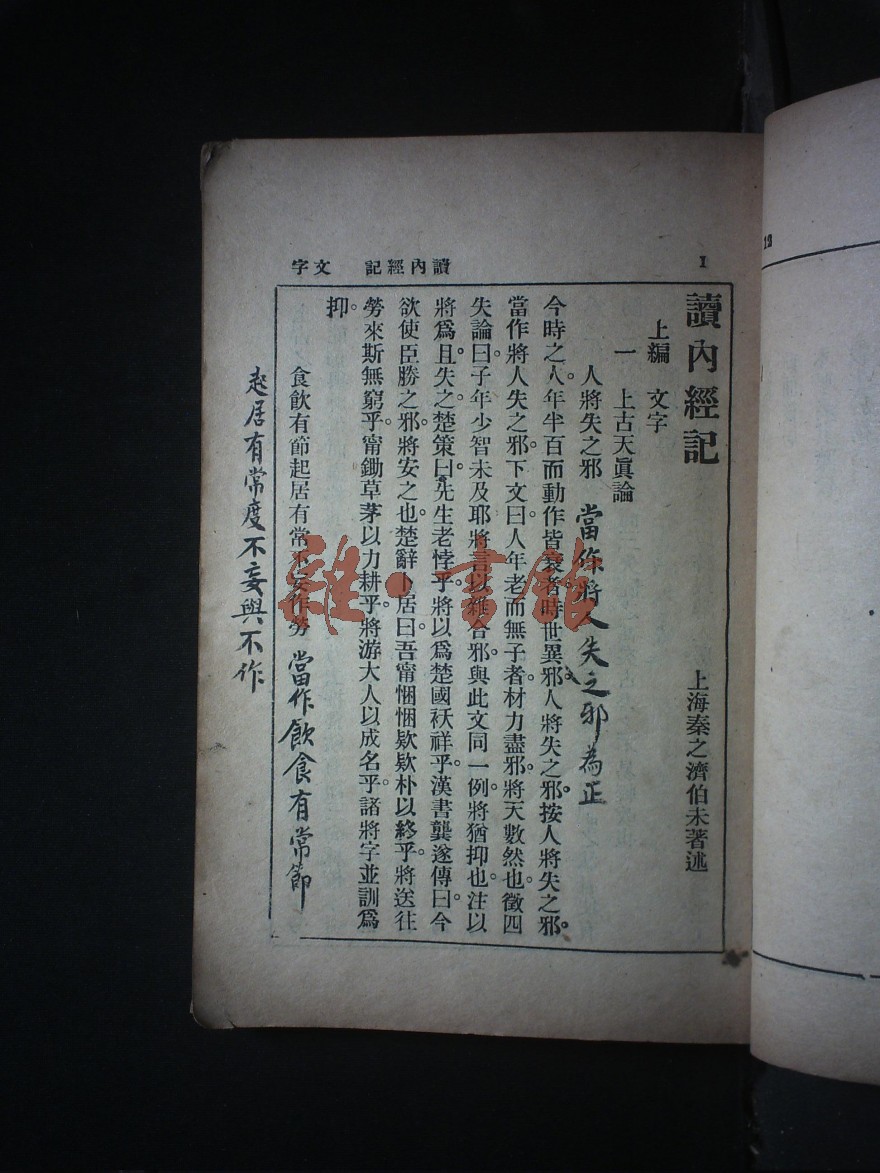 12
1
讀內經記 文字
讀內經記
上海秦之濟伯未著述
上編 文字
一 上古天眞論
人將失之邪 當作將人失之邪為正
今時之人。年半百而動作皆衰者。時世異邪。人將失之邪。按人將失之邪。
當作將人失之邪。下文曰。人年老而無子者。材力盡邪。將天數然也。徵四
失論曰。子年少智未及耶。將言以雜合邪。與此文同一例。將猶抑也。注以
將爲且。失之。楚策曰。先生老悖乎。將以爲楚國祅祥乎。漢書龔遂傳曰。今
欲使臣勝之邪。將安之也。楚辭卜居曰。吾甯悃悃欵欵朴以終乎。將送往
勞來斯無窮乎。甯鋤草茅以力耕乎。將游大人以成名乎。諸將字並訓爲
抑。
食飮有節起居有常不妄作勞 當作飲食有常節
起居有常度不妄與不作
雜·書館